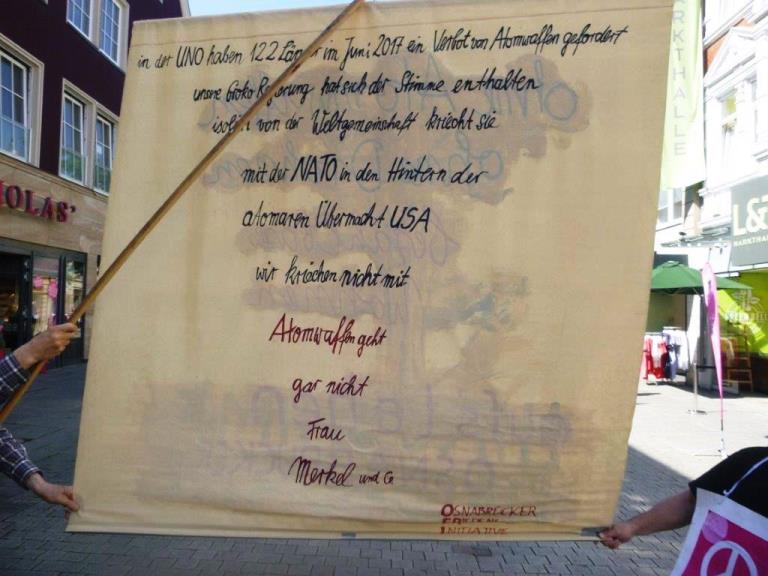 in der UNO haben 122 Länder im Juni 2017 ein Verbot von Atomwaffen gefordert
unsere Groko Regierung hat sich der Stimme enthalten
isoliert von der Weltgemeinschaft kriecht sie
mit der NATO in den Hintern der
atomaren Übermacht USA
wir kriechen nicht mit
Atomwaffen geht
gar nicht
Frau
Merkel und Co
OSNABRÜCKER
FRIEDENS
INITIATIVE
OLAS'
MARKTHALLE
L&T
MARKTHAL